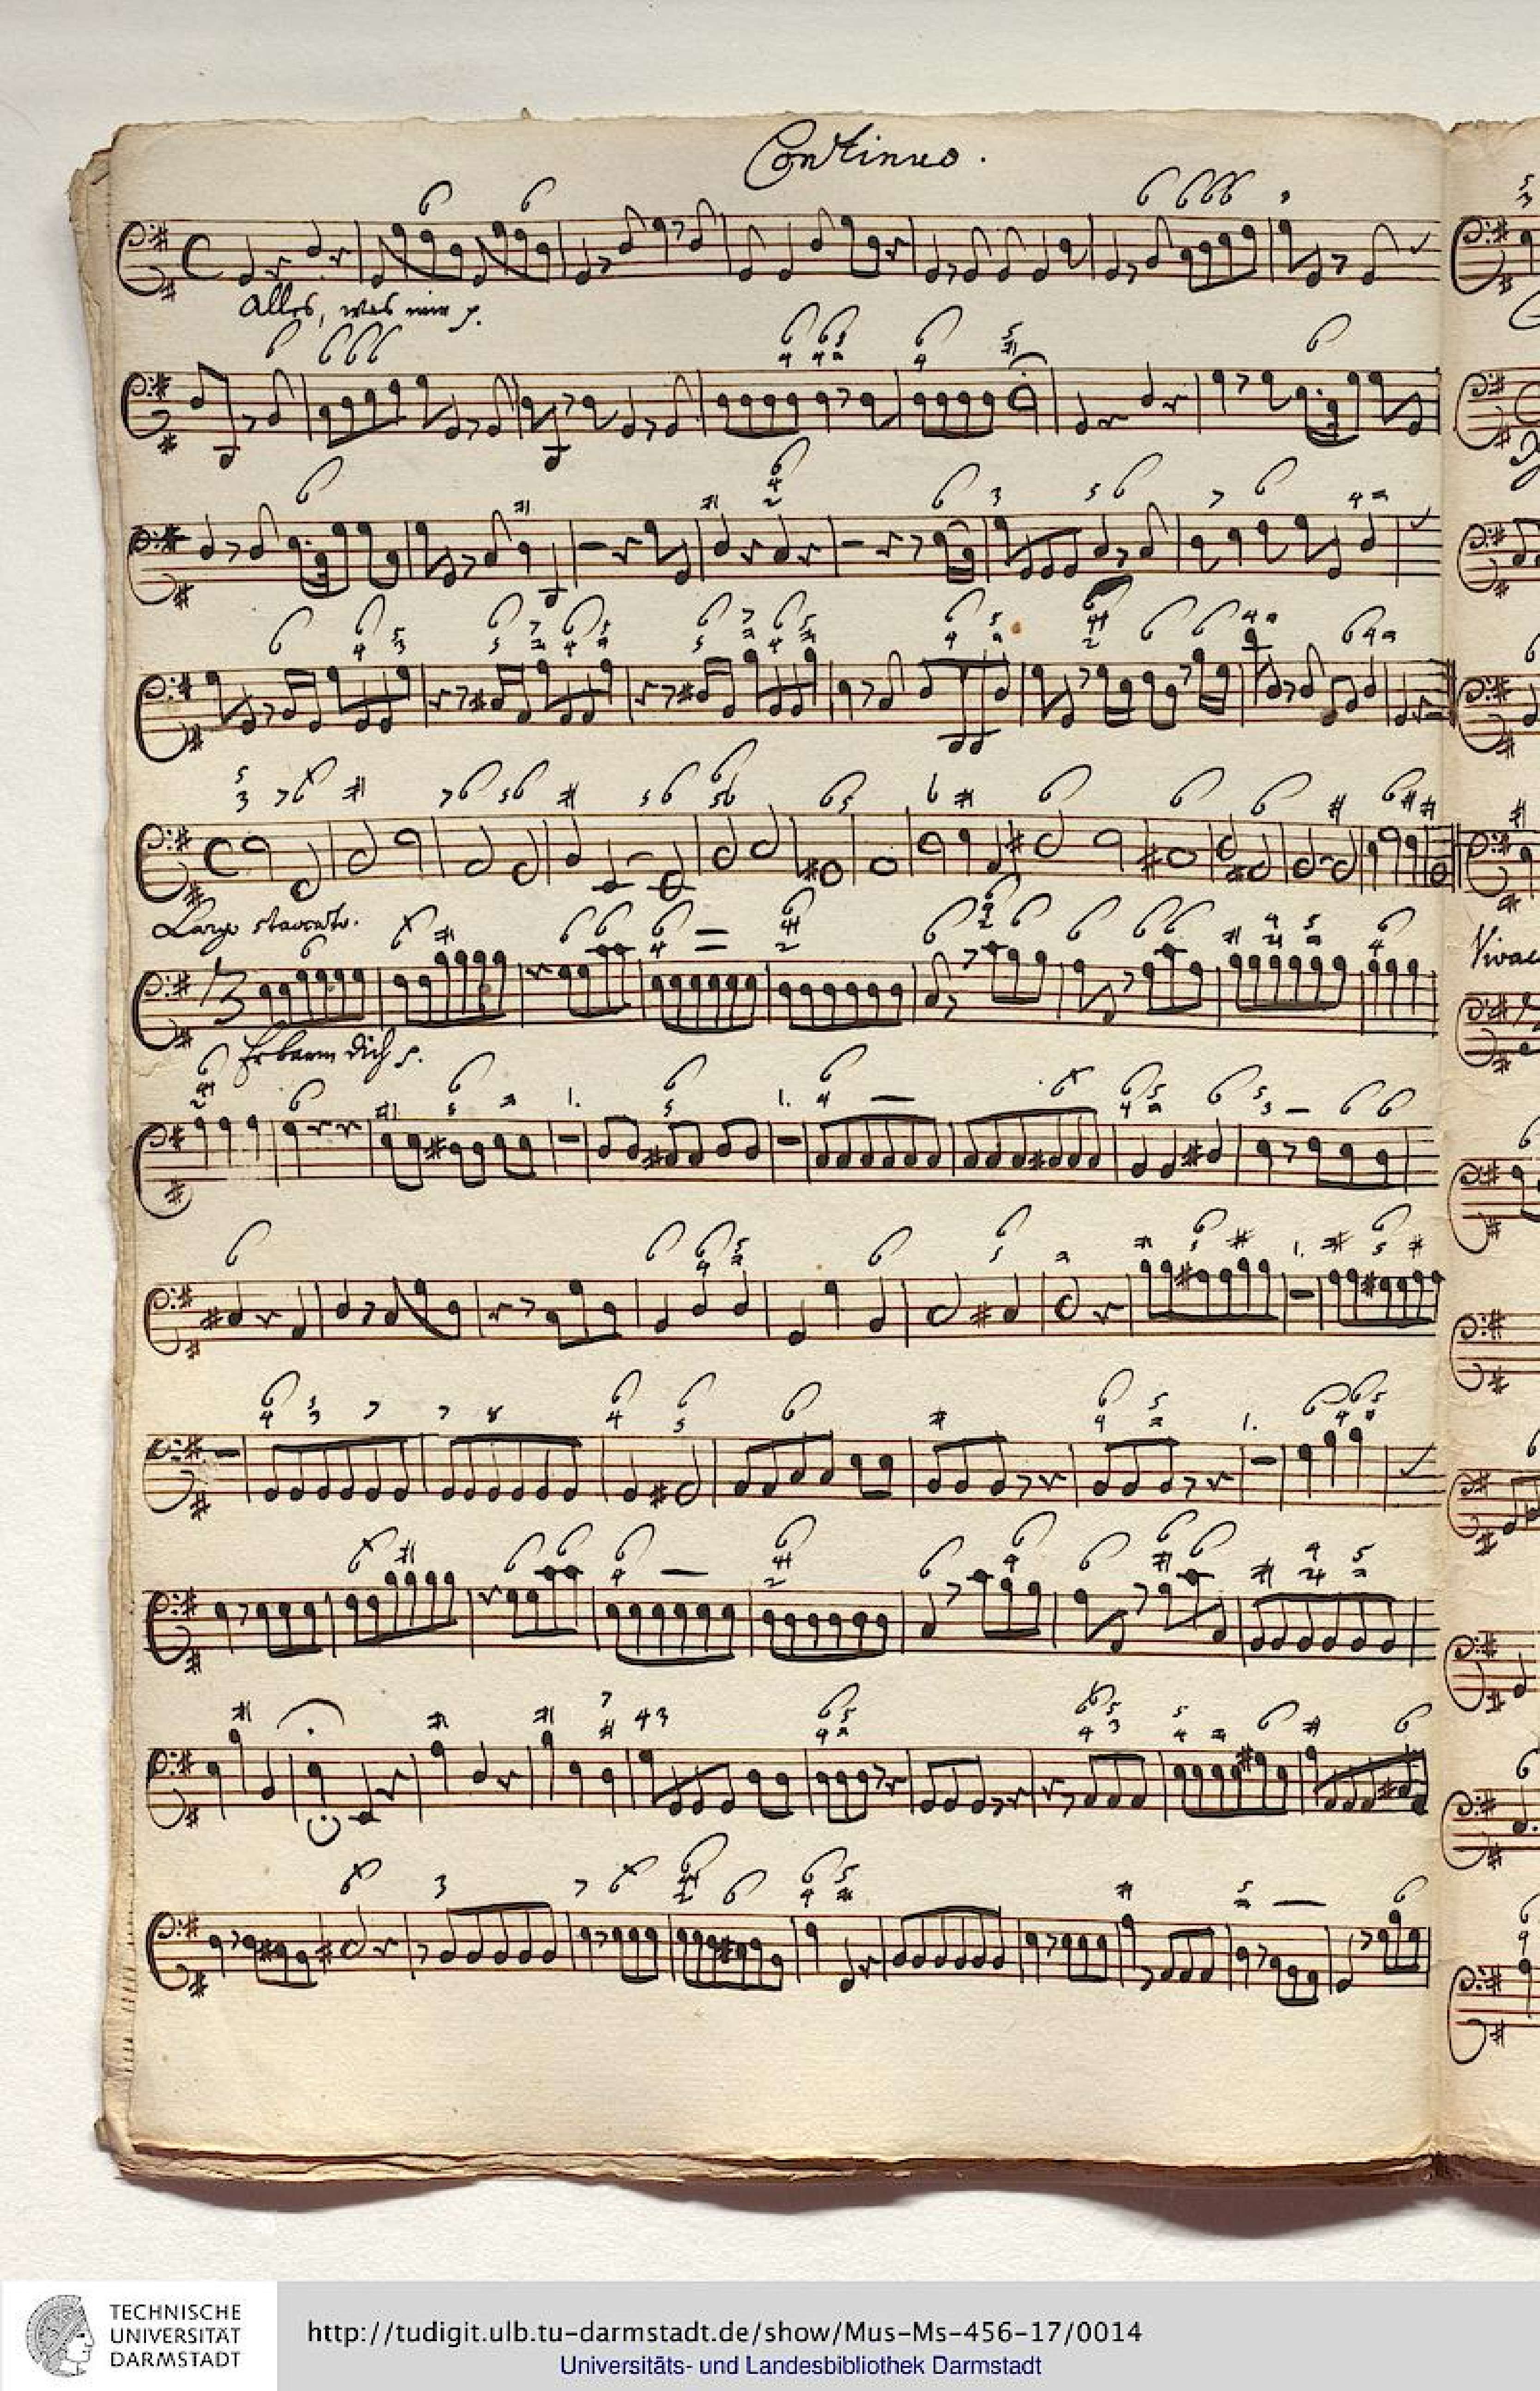 Continuo.
Alles, was mir p.
Largo staccato.
Erbarm dich p.
TECHNISCHE
UNIVERSITÄT
DARMSTADT
http://tudigit.ulb.tu-darmstadt.de/show/Mus-Ms-456-17/0014
Universitäts- und Landesbibliothek Darmstadt